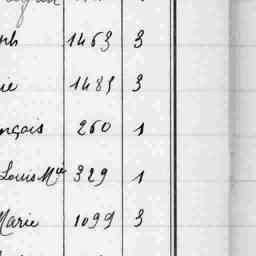 ph 1463 3
ie 1485 3
nçois 260 1
Louis Mie 329 1
Marie 1099 3